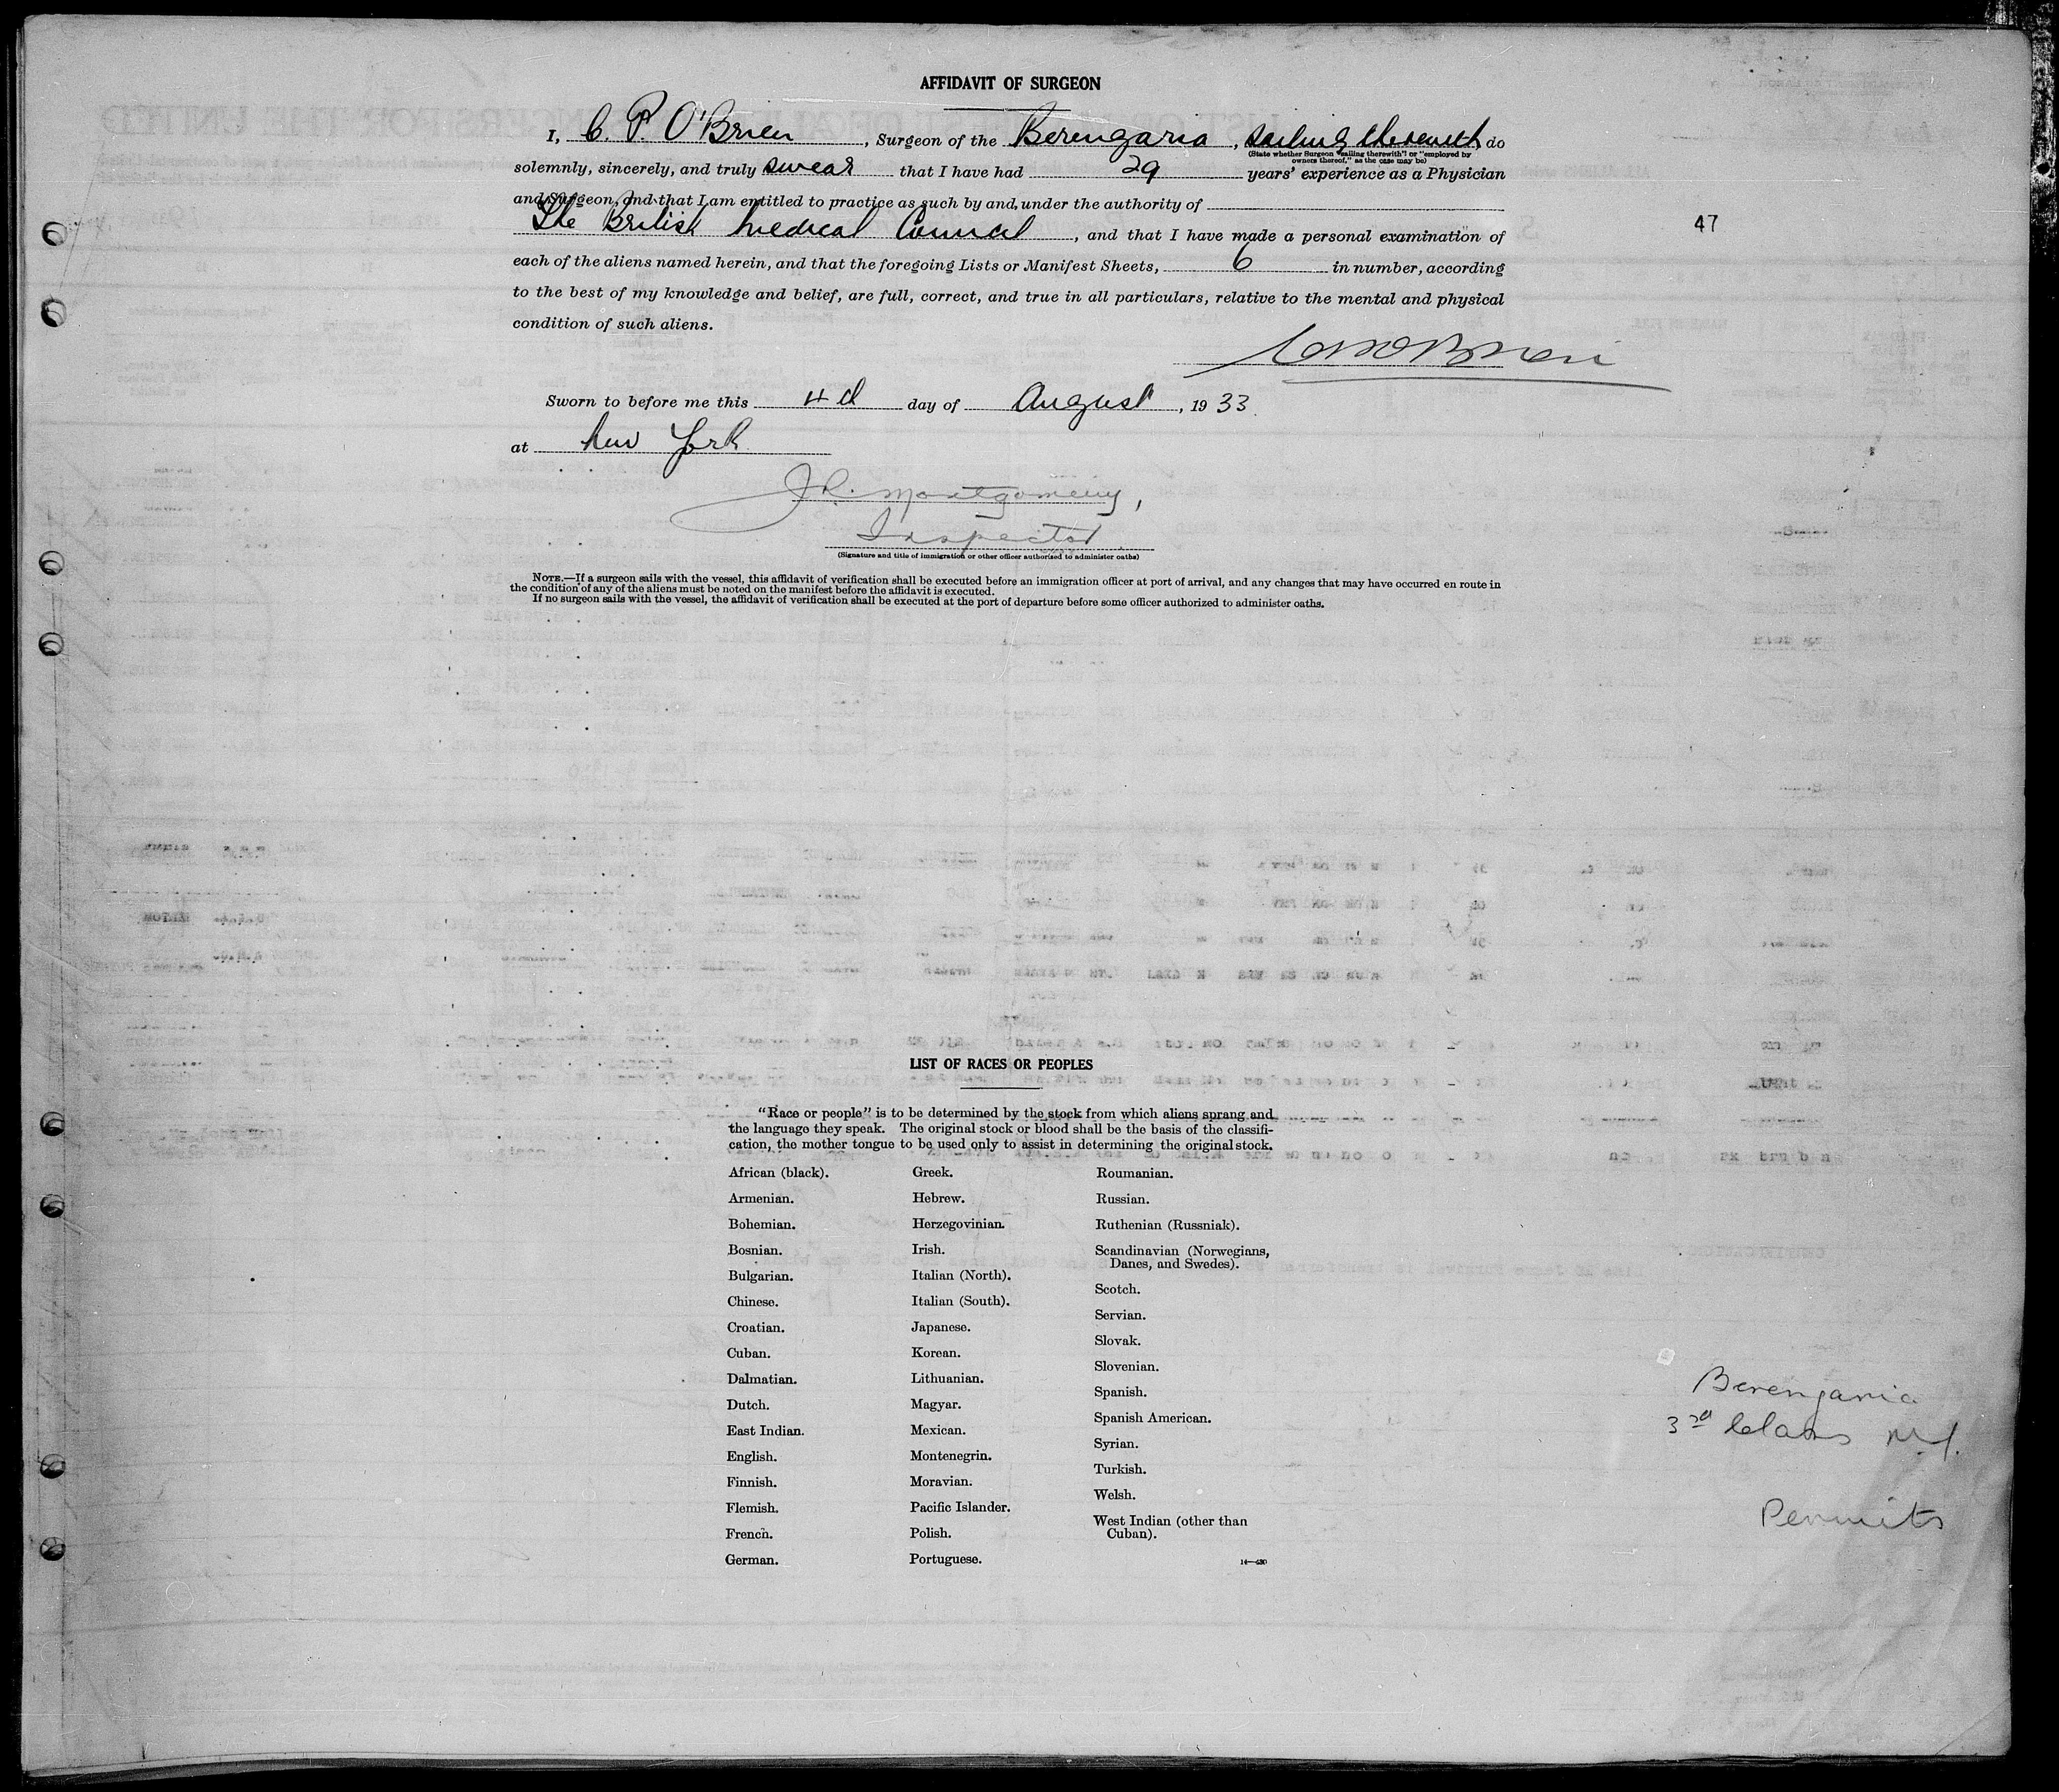 AFFIDAVIT OF SURGEON
I, C. P. O'Brien, Surgeon of the Berengaria, sailing therewith do
(State whether Surgeon "sailing therewith" or "employed by
owners thereof," as the case may be)
solemnly, sincerely, and truly swear that I have had 29 years' experience as a Physician
and Surgeon, and that I am entitled to practice as such by and under the authority of
The British Medical Council, and that I have made a personal examination of
47
each of the aliens named herein, and that the foregoing Lists or Manifest Sheets, 6 in number, according
to the best of my knowledge and belief, are full, correct, and true in all particulars, relative to the mental and physical
condition of such aliens.
Sworn to before me this 4th day of August, 1933.
at New York
J. R. Montgomery,
Inspector
(Signature and title of immigration or other officer authorized to administer oaths)
NOTE.—If a surgeon sails with the vessel, this affidavit of verification shall be executed before an immigration officer at port of arrival, and any changes that may have occurred en route in
the condition of any of the aliens must be noted on the manifest before the affidavit is executed.
If no surgeon sails with the vessel, the affidavit of verification shall be executed at the port of departure before some officer authorized to administer oaths.
LIST OF RACES OR PEOPLES
"Race or people" is to be determined by the stock from which aliens sprang and
the language they speak. The original stock or blood shall be the basis of the classifi-
cation, the mother tongue to be used only to assist in determining the original stock.
African (black).
Armenian.
Bohemian.
Bosnian.
Bulgarian.
Chinese.
Croatian.
Cuban.
Dalmatian.
Dutch.
East Indian.
English.
Finnish.
Flemish.
French.
German.
Greek.
Hebrew.
Herzegovinian.
Irish.
Italian (North).
Italian (South).
Japanese.
Korean.
Lithuanian.
Magyar.
Mexican.
Montenegrin.
Moravian.
Pacific Islander.
Polish.
Portuguese.
Roumanian.
Russian.
Ruthenian (Russniak).
Scandinavian (Norwegians,
Danes, and Swedes).
Scotch.
Servian.
Slovak.
Slovenian.
Spanish.
Spanish American.
Syrian.
Turkish.
Welsh.
West Indian (other than
Cuban).
Berengaria
3rd Class
Permits